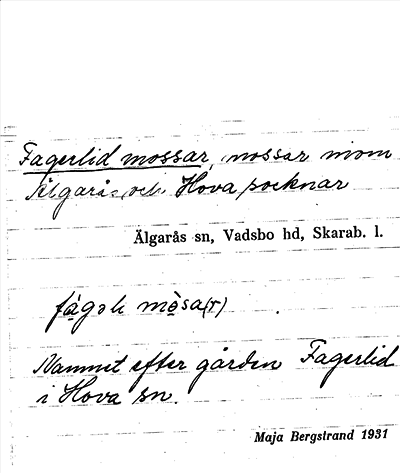 Fagerlid mossar, mossar inom
Älgarås och Hova socknar
Älgarås sn, Vadsbo hd, Skarab. l.
mòsa(r)
Namnet efter gården Fagerlid
i Hova sn.
Maja Bergstrand 1931